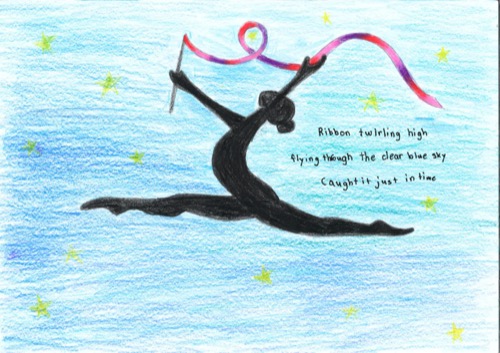 Ribbon twirling high
flying though the clear blue sky
Caught it just in time